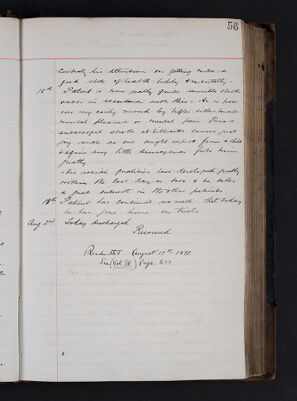 56
Controls his attention on getting into a
good state of health bodily & mentally.
15th Patient is now really quite sensible &
in accordance with this. He is how
ever very easily moved by trifles either towards
mental pleasure or mental pain. Thus a
successful stroke at billiards causes just
joy such as one might expect from a child
& again any little annoyance frets him
greatly
His social qualities have developed greatly
within the last day or two & he takes
a great interest in the other patients
18th Patient has continued so well that today
he has gone home on trial.
Aug 2nd Today discharged
Recovered
Readmitted August 17th
See (Vol IV) Page